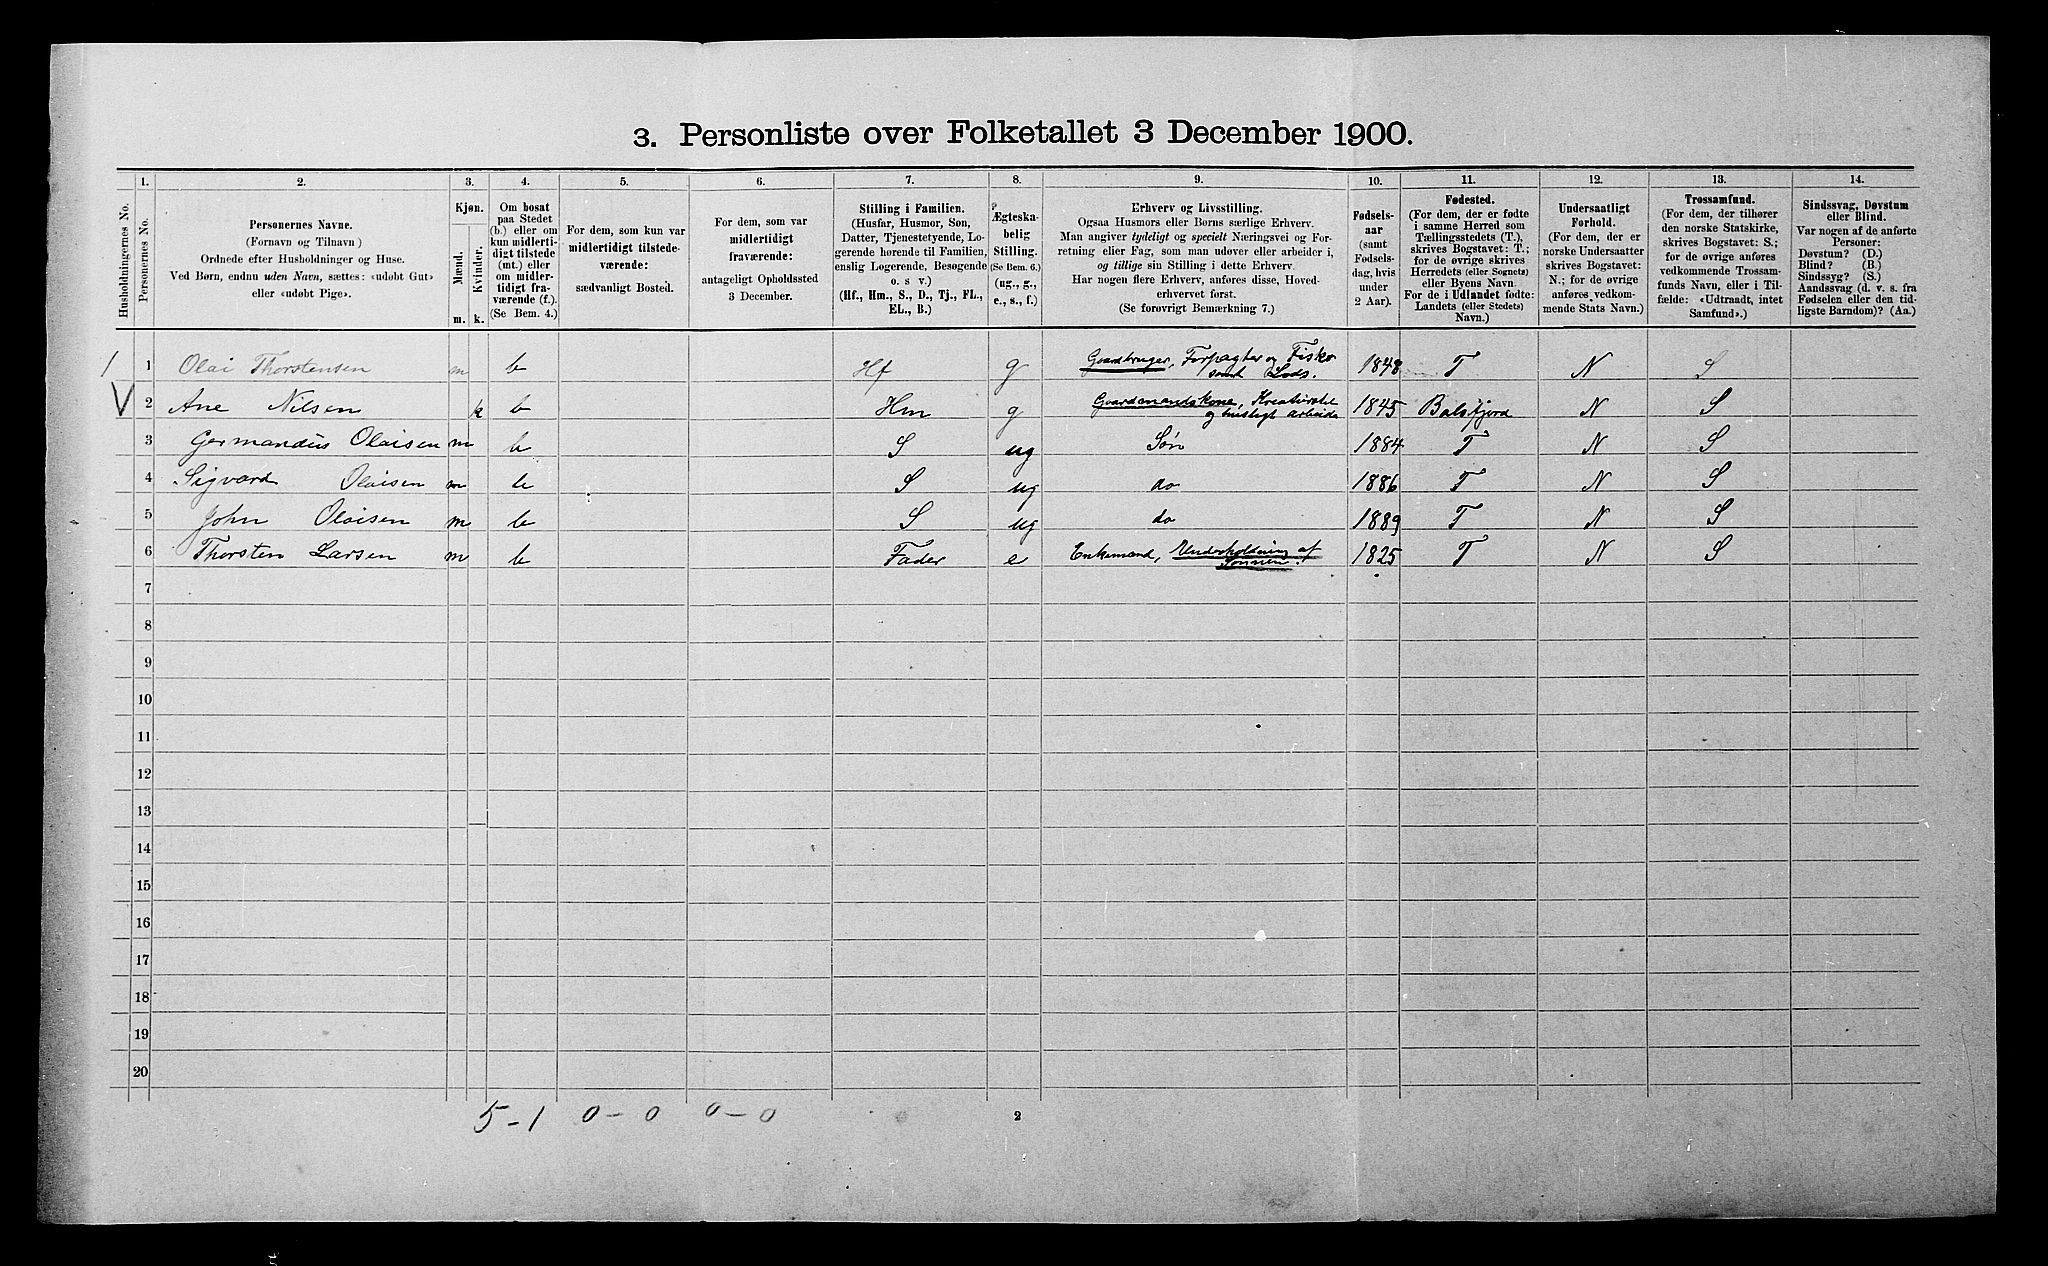 3. Personliste over Folketallet 3 December 1900.
Husholdningernes No.
1.
Personernes No.
2.
Personernes Navne.
(Fornavn og Tilnavn)
Ordnede efter Husholdninger og Huse.
Ved Børn, endnu uden Navn, sættes: «udøbt Gut»
eller «udøbt Pige».
3.
Kjøn.
Mænd.
Kvinder.
m. k.
4.
Om bosat
paa Stedet
(b.) eller om
kun midlerti-
digt tilstede
(mt.) eller
om midler-
tidigt fra-
værende (f.).
(Se Bem. 4.)
5.
For dem, som kun var
midlertidigt tilstede-
værende:
sædvanligt Bosted.
6.
For dem, som var
midlertidigt
fraværende:
antageligt Opholdssted
3 December.
7.
Stilling i Familien.
(Husfar, Husmor, Søn,
Datter, Tjenestetyende, Lo-
gerende hørende til Familien,
enslig Logerende, Besøgende
o. s v.)
(Hf., Hm., S., D., Tj., FL.,
EL., B.)
8.
?
Ægteska-
belig
Stilling.
(Se Bem. 6.)
(ug., g.,
e., s., f.)
9.
Erhverv og Livsstilling.
Ogsaa Husmors eller Børns særlige Erhverv.
Man angiver tydeligt og specielt Næringsvei og For-
retning eller Fag, som man udøver eller arbeider i,
og tillige sin Stilling i dette Erhverv.
Har nogen flere Erhverv, anføres disse, Hoved-
erhvervet først.
(Se forøvrigt Bemærkning 7.)
10.
Fødsels-
aar
(samt
Fødsels-
dag, hvis
under
2 Aar).
11.
Fødested.
(For dem, der er fødte
i samme Herred som
Tællingsstedets (T.),
skrives Bogstavet: T.;
for de øvrige skrives
Herredets (eller Sognets)
eller Byens Navn.
For de i Udlandet fødte:
Landets (eller Stedets)
Navn.)
12.
Undersaatligt
Forhold.
(For dem, der er
norske Undersaatter
skrives Bogstavet:
N.; for de øvrige
anføres vedkom-
mende Stats Navn.)
13.
Trossamfund.
(For dem, der tilhører
den norske Statskirke,
skrives Bogstavet: S.;
for de øvrige anføres
vedkommende Trossam-
funds Navn, eller i Til-
fælde: «Udtraadt, intet
Samfund».)
14.
Sindssvag, Døvstum
eller Blind.
Var nogen af de anførte
Personer:
Døvstum? (D.)
Blind? (B.)
Sindssyg? (S.)
Aandssvag (d. v. s. fra
Fødselen eller den tid-
ligste Barndom)? (Aa.)
1 1 Olai Thorstensen m b Hf g Gaardbruger, Forpagter og Fisker
samt Lods. 1848 T N S
V 2 Ane Nilsen k b Hm g Gaardmandskone, Kreaturstel
og husligt arbeide 1845 Balsfjord N S
3 Germandus Olaisen m b S ug Søn 1884 T N S
4 Sigvard Olaisen m b S ug do 1886 T N S
5 John Olaisen m b S ug do 1889 T N S
6 Thorsten Larsen m b Fader e Enkemand, Underholdning af
Sønnen. 1825 T N S
7
8
9
10
11
12
13
14
15
16
17
18
19
20
5-1 0-0 0-0 2